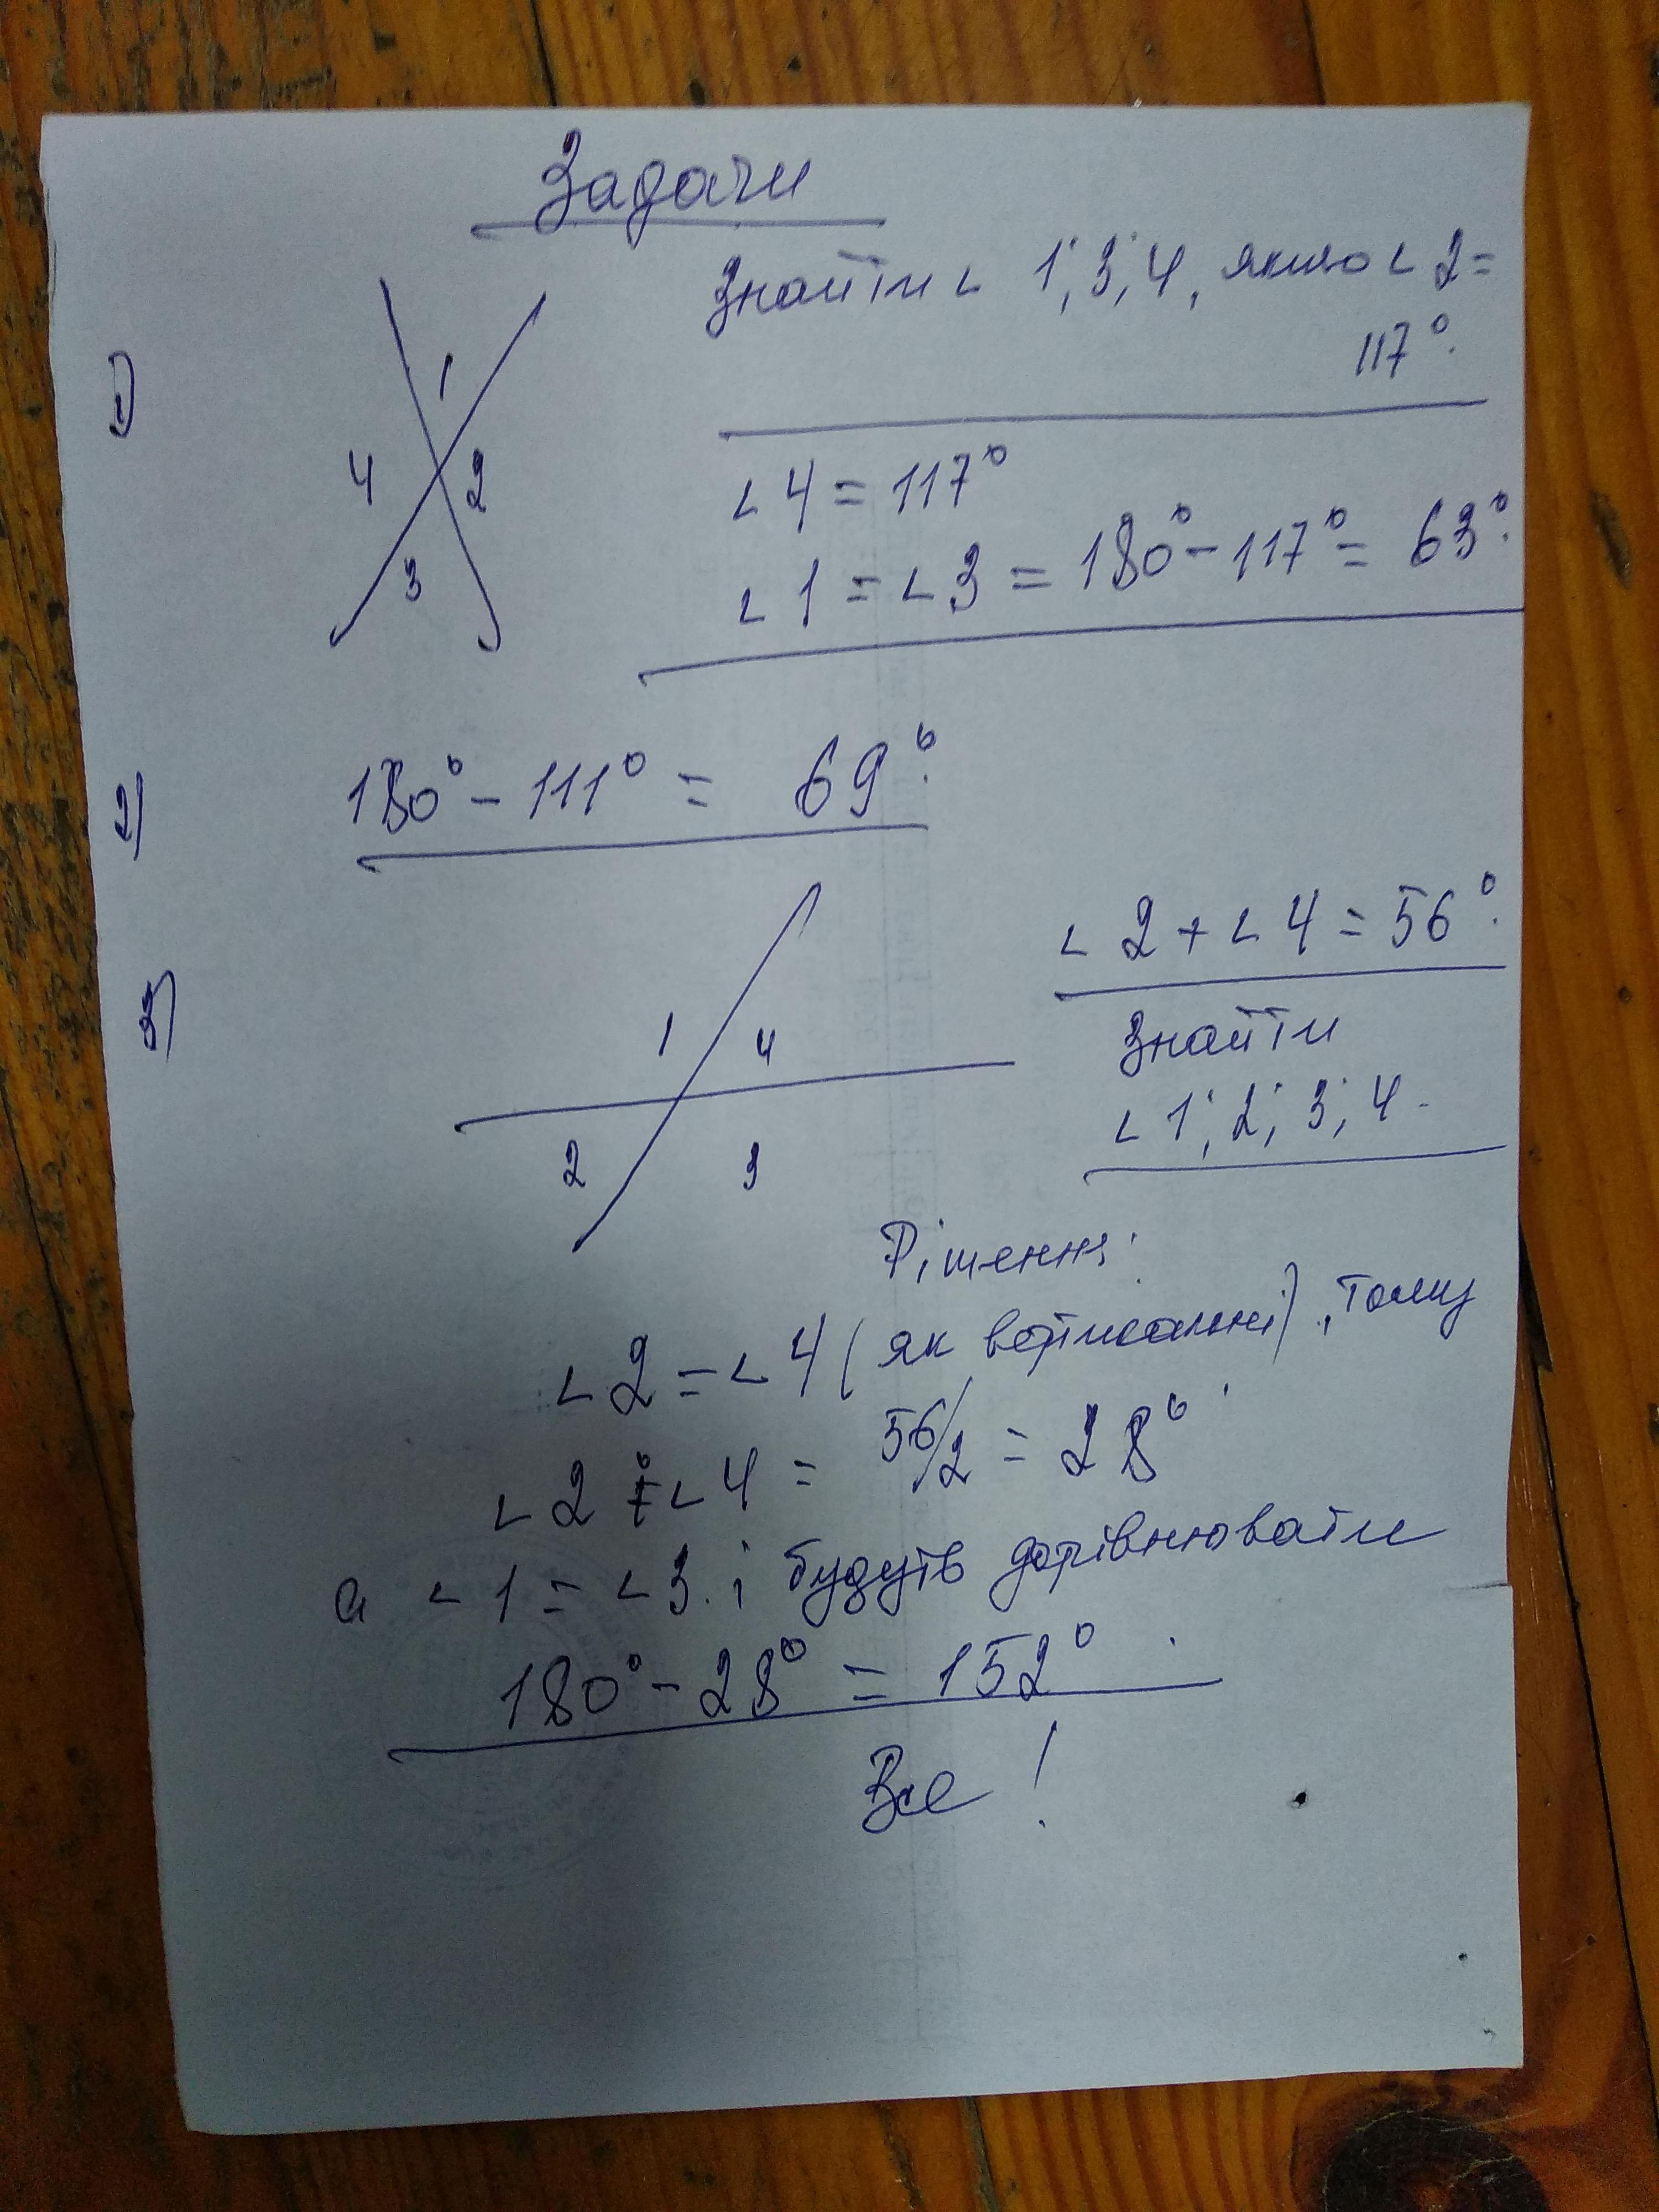 Задачи
1)
Знайти ∟ 1; 3; 4, якщо ∟ 2 =
117°.
1
4 2
3
∟ 4 = 117°
∟ 1 = ∟ 3 = 180° - 117° = 63°.
2) 180° - 111° = 69°.
3)
∟ 2 + ∟ 4 = 56°.
Знайти
∟ 1; 2; 3; 4.
1 4
2 3
Рішення:
∟ 2 = ∟ 4 ( як ), тому
∟ 2 + ∟ 4 = 56/2 = 28°
а ∟ 1 = ∟ 3. і будуть дорівнювати
180° - 28° = 152°.
Все!